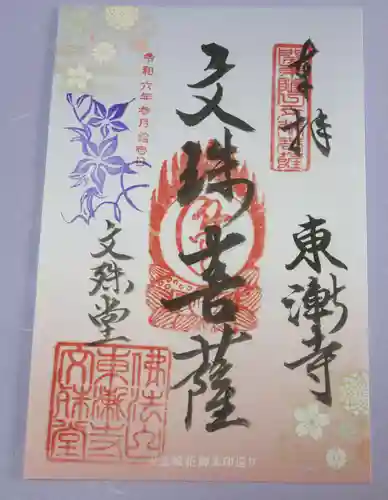 奉拝
東漸寺
文殊菩薩
令和六年参月拾壱日
文殊堂
佛法山
東漸寺
文殊堂